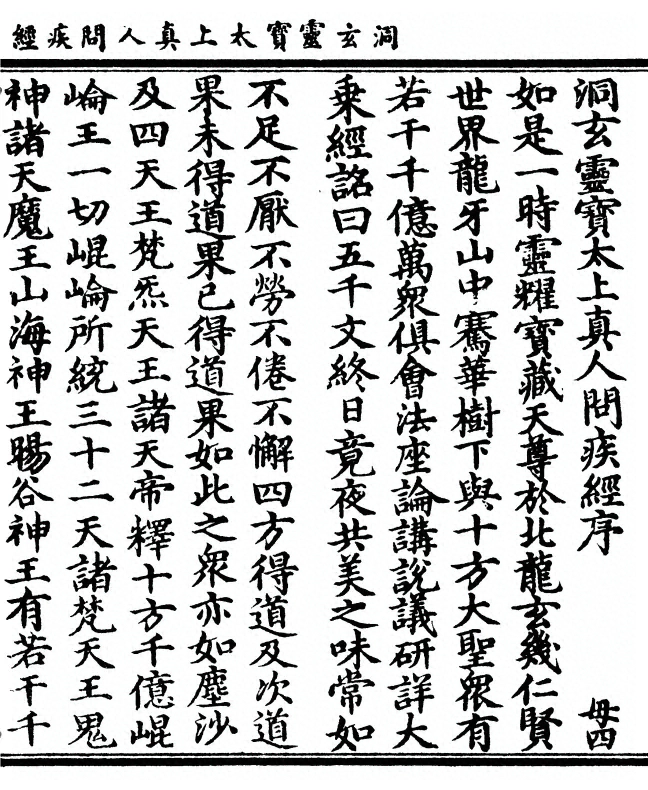 洞玄靈寶太上真人問疾經
洞玄靈寶太上真人問疾經序 母四
如是一時靈耀寶藏天尊於北龍玄幾仁賢
世界龍牙山中騫華樹下與十方大聖眾有
若干千億萬眾俱會法座論講說議研詳大
乘經詺曰五千文終日竟夜共美之味常如
不足不厭不勞不倦不懈四方得道及次道
果未得道果已得道果如此之眾亦如塵沙
及四天王梵炁天王諸天帝釋十方千億崐
崘王一切崐崘所統三十二天諸梵天王鬼
神諸天魔王山海神王暘谷神王有若干千